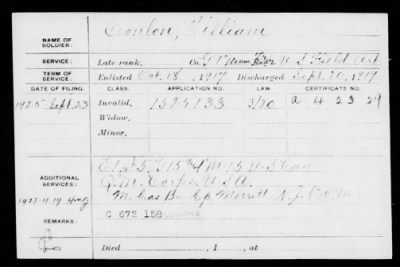 NAME OF SOLDIER: Conlon, William
SERVICE: Late rank, Co G 1" Minn U S Field Art
TERM OF SERVICE: Enlisted Oct. 18, 1917 Discharged Sept. 20, 1919
DATE OF FILING. CLASS. APPLICATION NO. LAW CERTIFICATE NO.
1925 Sept. 23 Invalid, 1525133 3/20 a 4 23 29
Widow,
Minor,
ADDITIONAL SERVICES: M 15 U S Cav
Q. M. Corps U S A
M. Cas B. Cp Merritt N. J.
REMARKS: C 672 158
Died , 1 , at